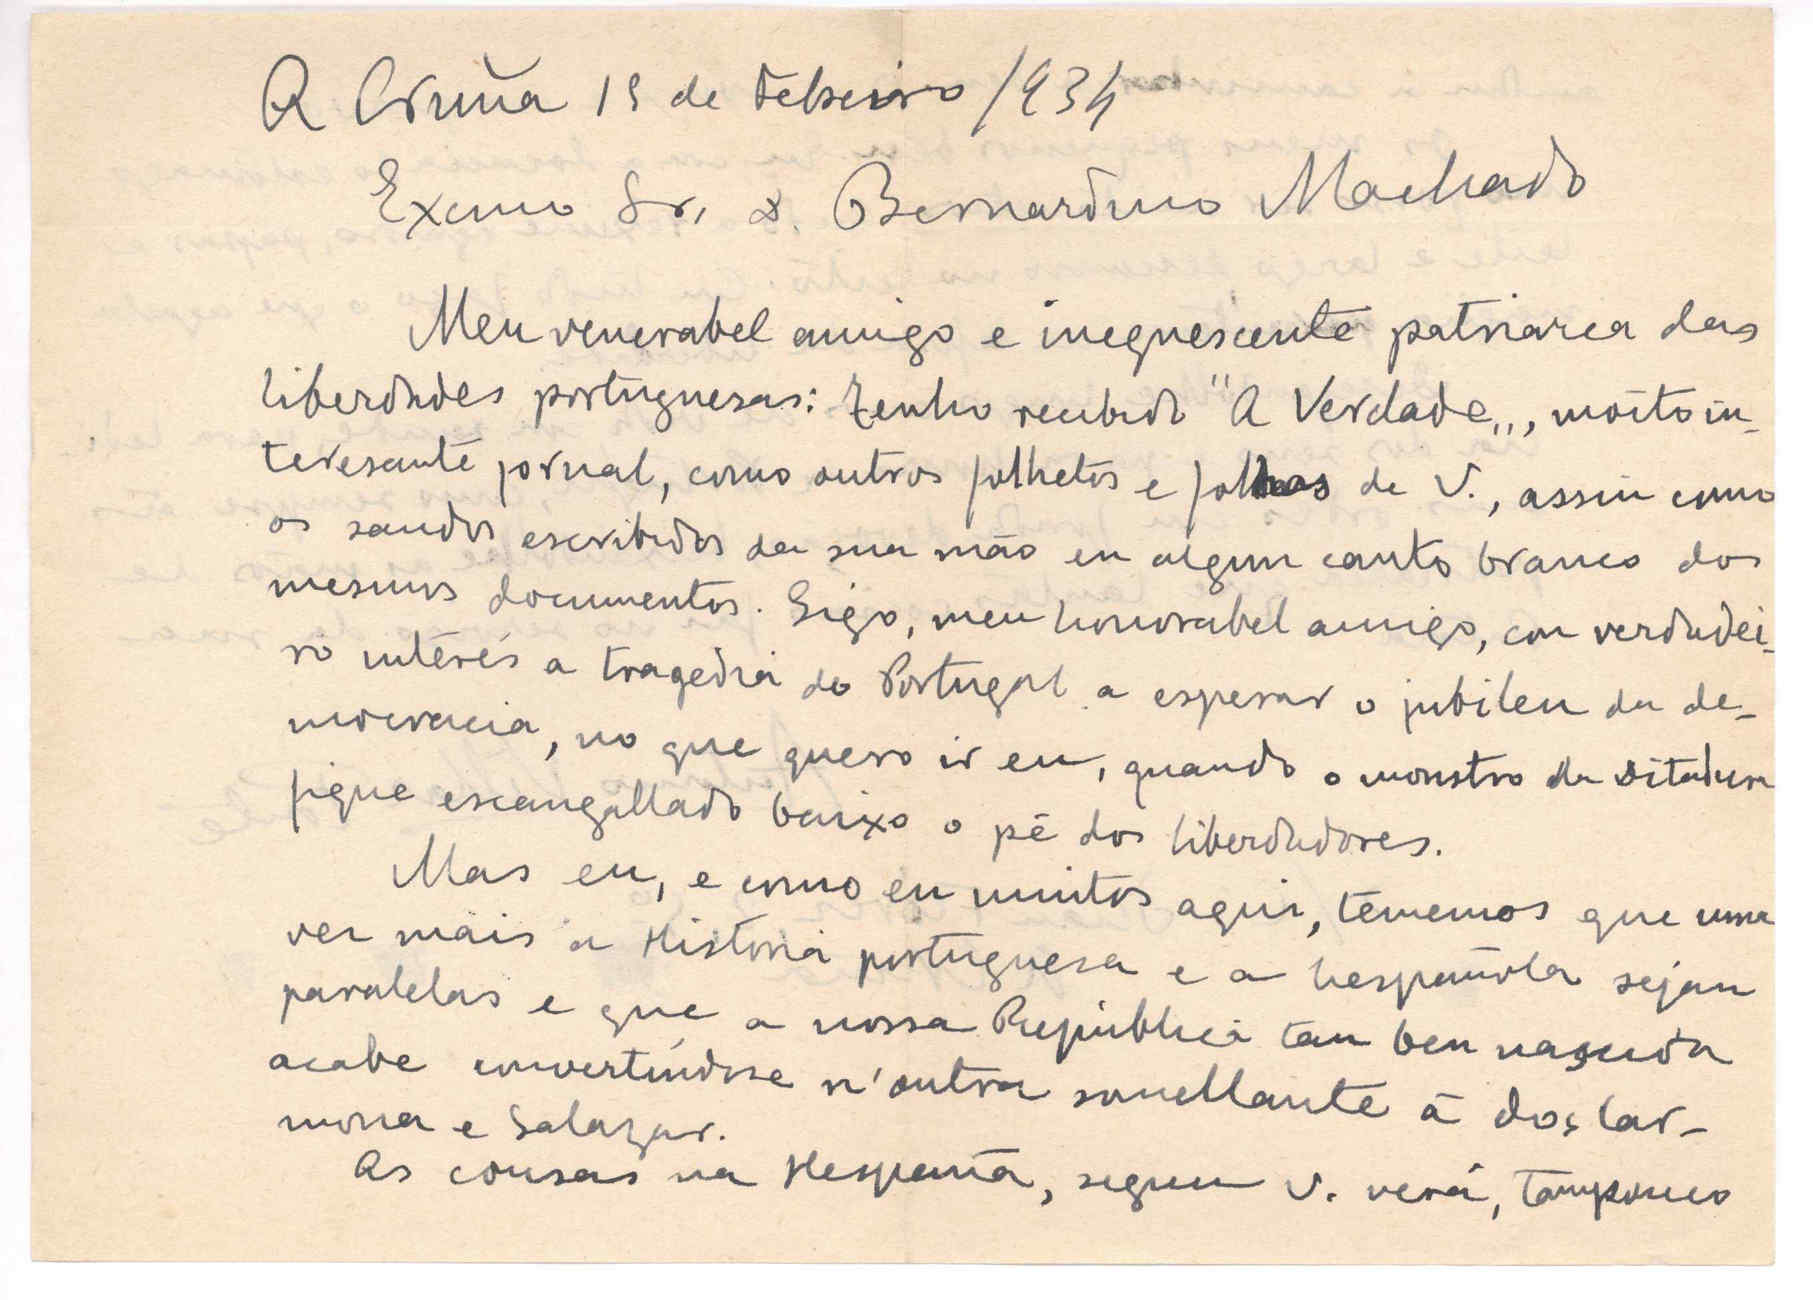 A Cruña 19 de Febreiro 1934
Exmo Sr. D. Bernardino Machado
Meu venerabel amigo e inequescente patriarca das
liberdades portuguesas: Tenho recibido "A Verdade", moito in-
teresante jornal, como outros folhetos e folhas de V., assin como
os saudos escribidos da sua mão en algun canto branco dos
mesmos documentos. Sigo, meu honorabel amigo, con verdadei-
ro interés a tragedia de Portugal a esperar o jubileu da de-
mocracia, no que quero ir eu, quando o monstro da Ditadura
fique escangallado baixo o pé dos liberdadores.
Mas eu, e como eu muitos aqui, tememos que uma
vez mais a Historia portuguesa e a hespañola sejan
paralelas e que a nossa República tan ben nascida
acabe convertíndose n'outra semellante á dos Car-
mona e Salazar.
As cousas na Hespaña, segun V. verá, tampouco